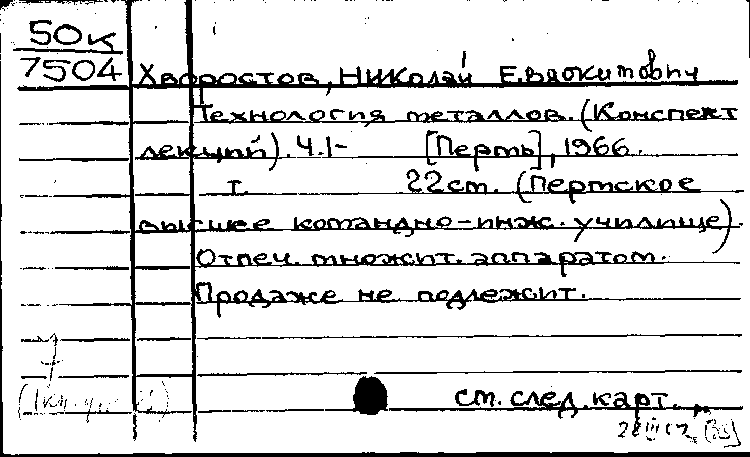 50к
7504
Хворостов, Николай Евдокимович
Технология металлов. (Конспект
лекций). Ч.1- [Пермь], 1966.
т. 22см. (Пермское
высшее командно-инж. училище).
Отпеч. множит. аппаратом.
Продаже не подлежит.
7
см. след. карт.